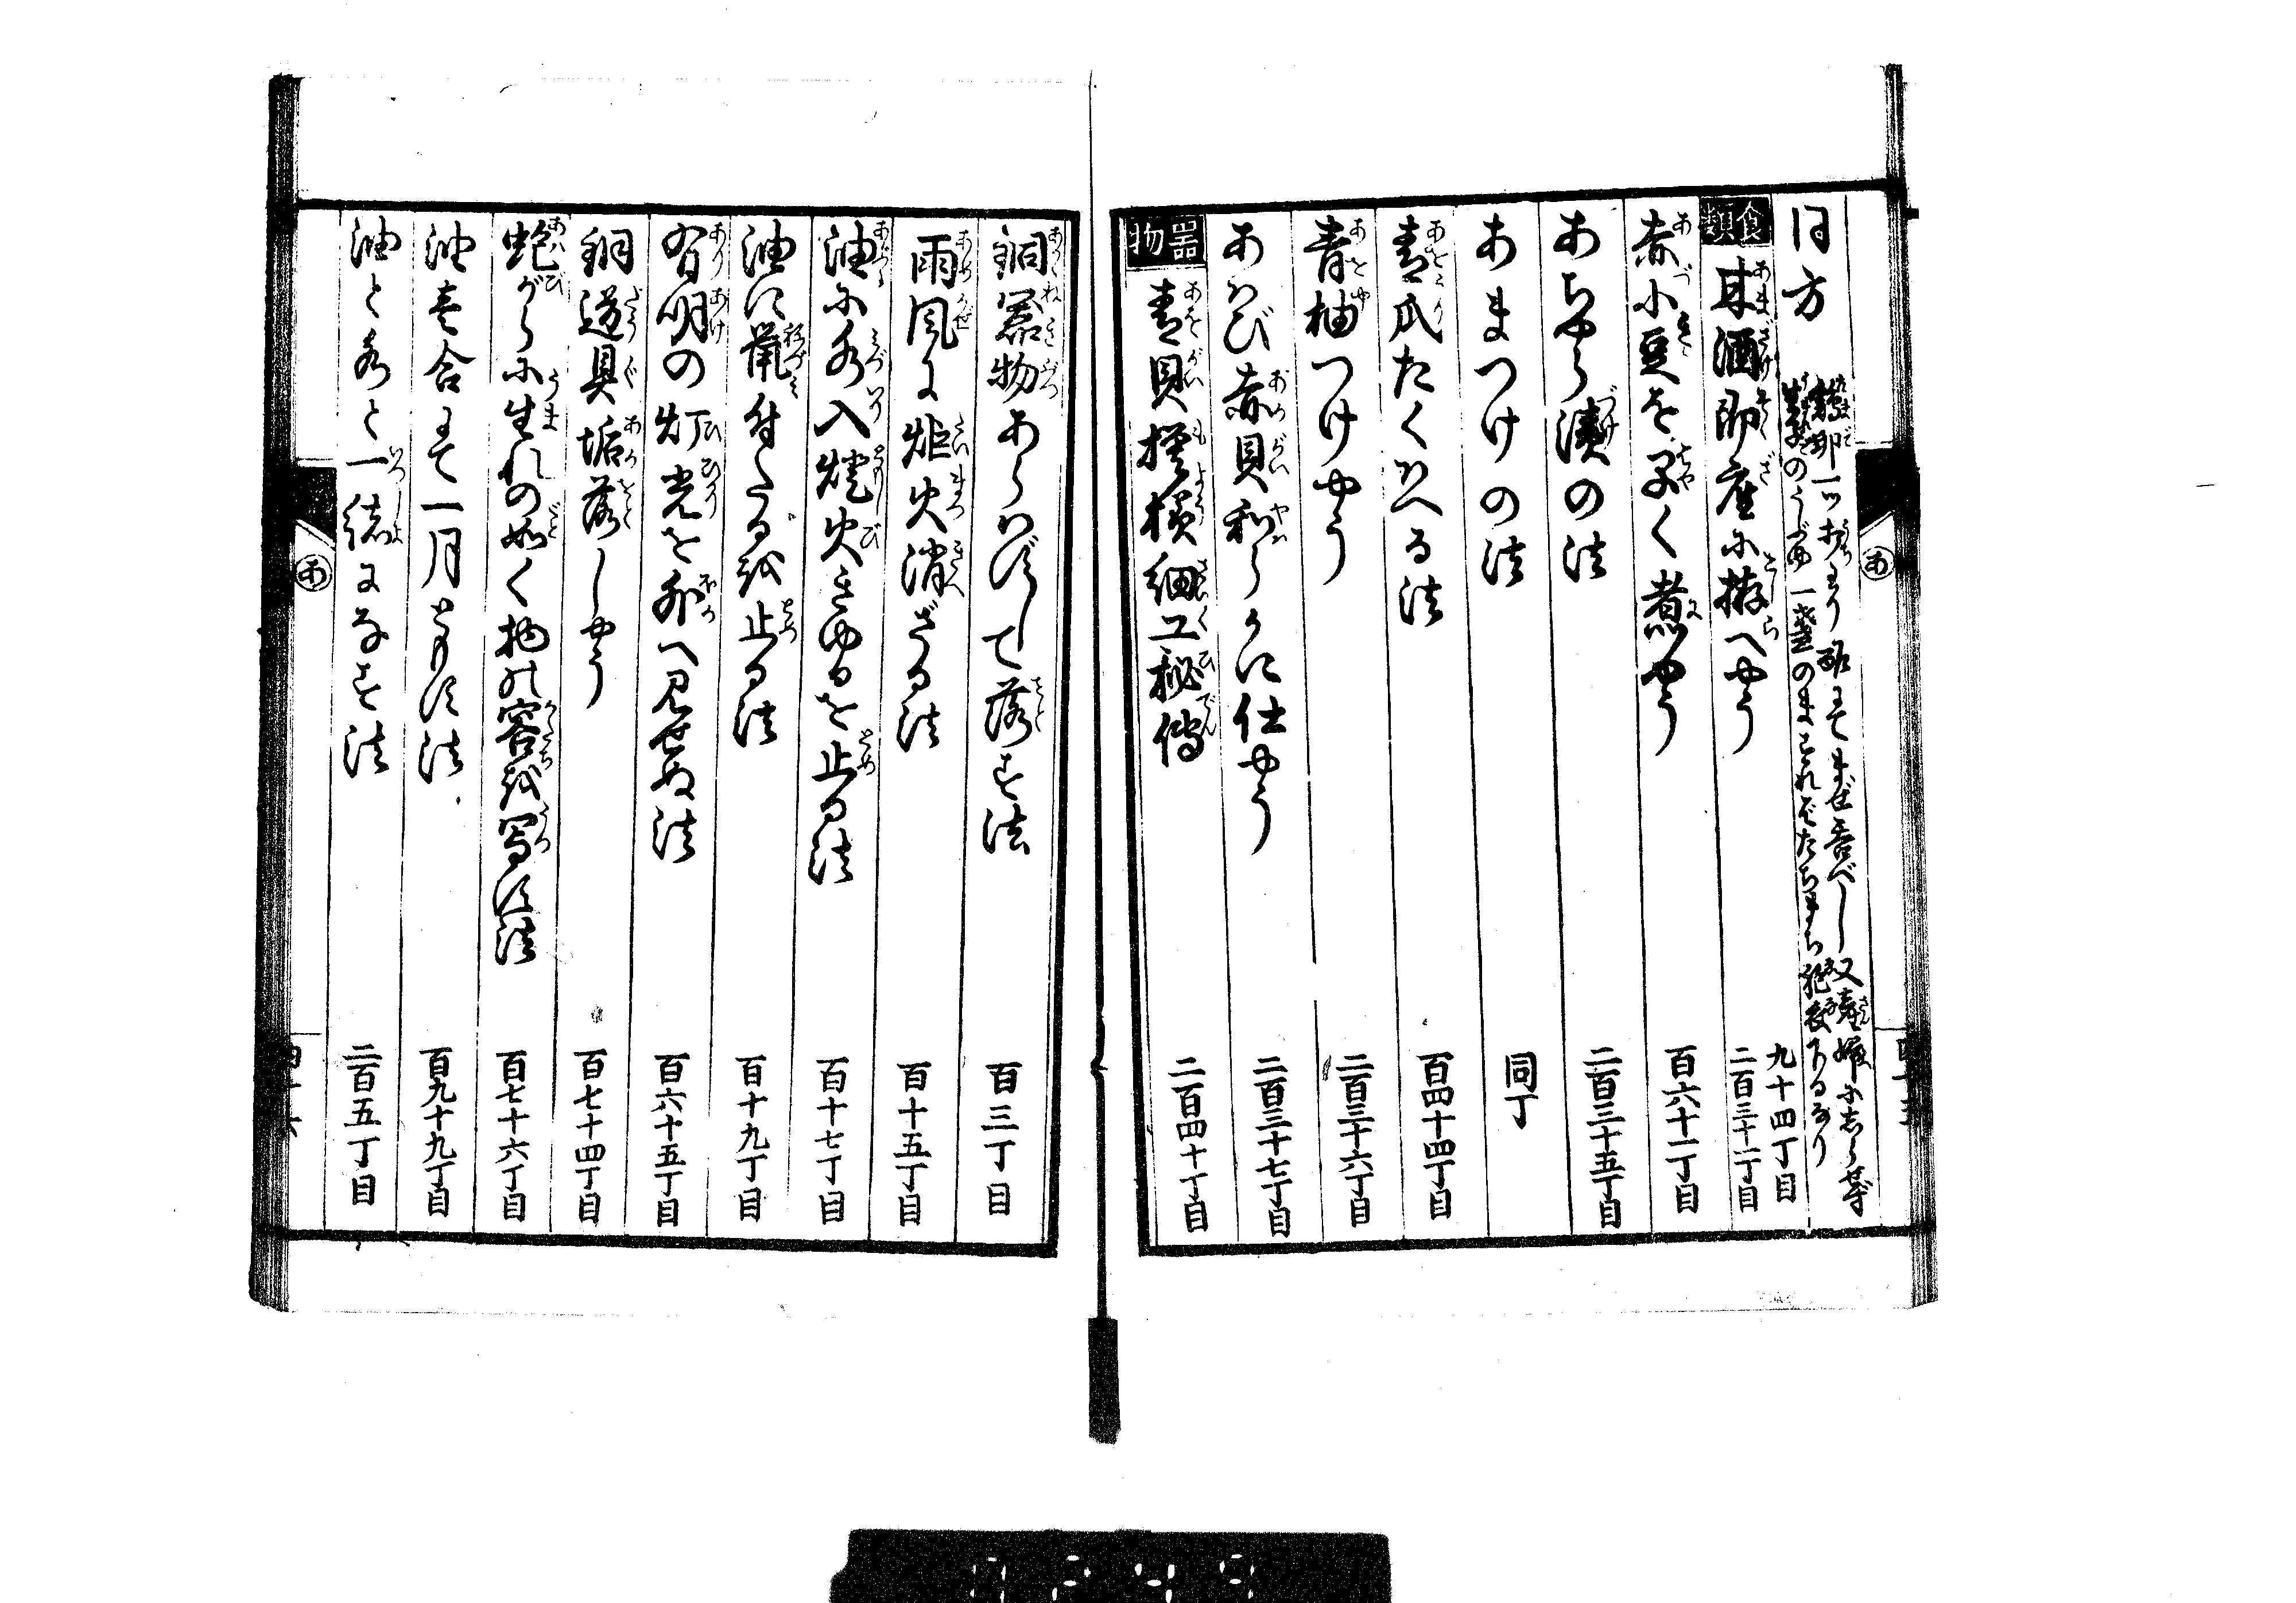 同方
鶏卵一ツわり酢にてまぜ呑べし又産婦にしらせず
のうぶゆ一盞のましむればたちまち胞衣下るなり
九十四丁目
食類
甘酒即座に拵へやう
二百三十一丁目
赤小豆を早く煮やう
百六十一丁目
あちやら漬の法
二百三十五丁目
あまつけの法
同丁
青瓜たくはへる法
百四十四丁目
青柚つけやう
二百三十六丁目
あはび赤貝和らかに仕やう
二百三十七丁目
器物
青貝摸様細工秘傳
二百四十丁目
銅器物あらはずして落す法
百三丁目
雨風に炬火消ざる法
百十五丁目
油に水入燈火きゆるを止る法
百十七丁目
油に鼠付たるを止る法
百十九丁目
有明の灯光を外へ見せぬ法
百六十五丁目
銅道具垢落しやう
百七十四丁目
鮑がらに生れの如く物の容を写す法
百七十六丁目
油壱合にて一月ともす法
百九十九丁目
油と水と一緒になす法
二百五丁目